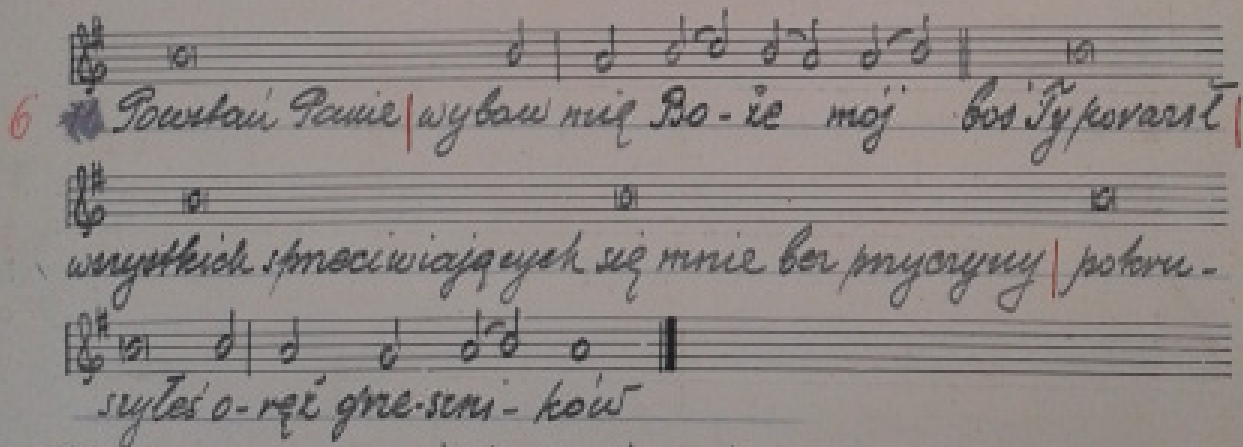 6 Powstań Panie | wybaw mię Bo-że mój boś Ty poraził |
wszystkich sprzeciwiających się mnie bez przyczyny | pokru-
szyłeś o-ręż grze-szni-ków